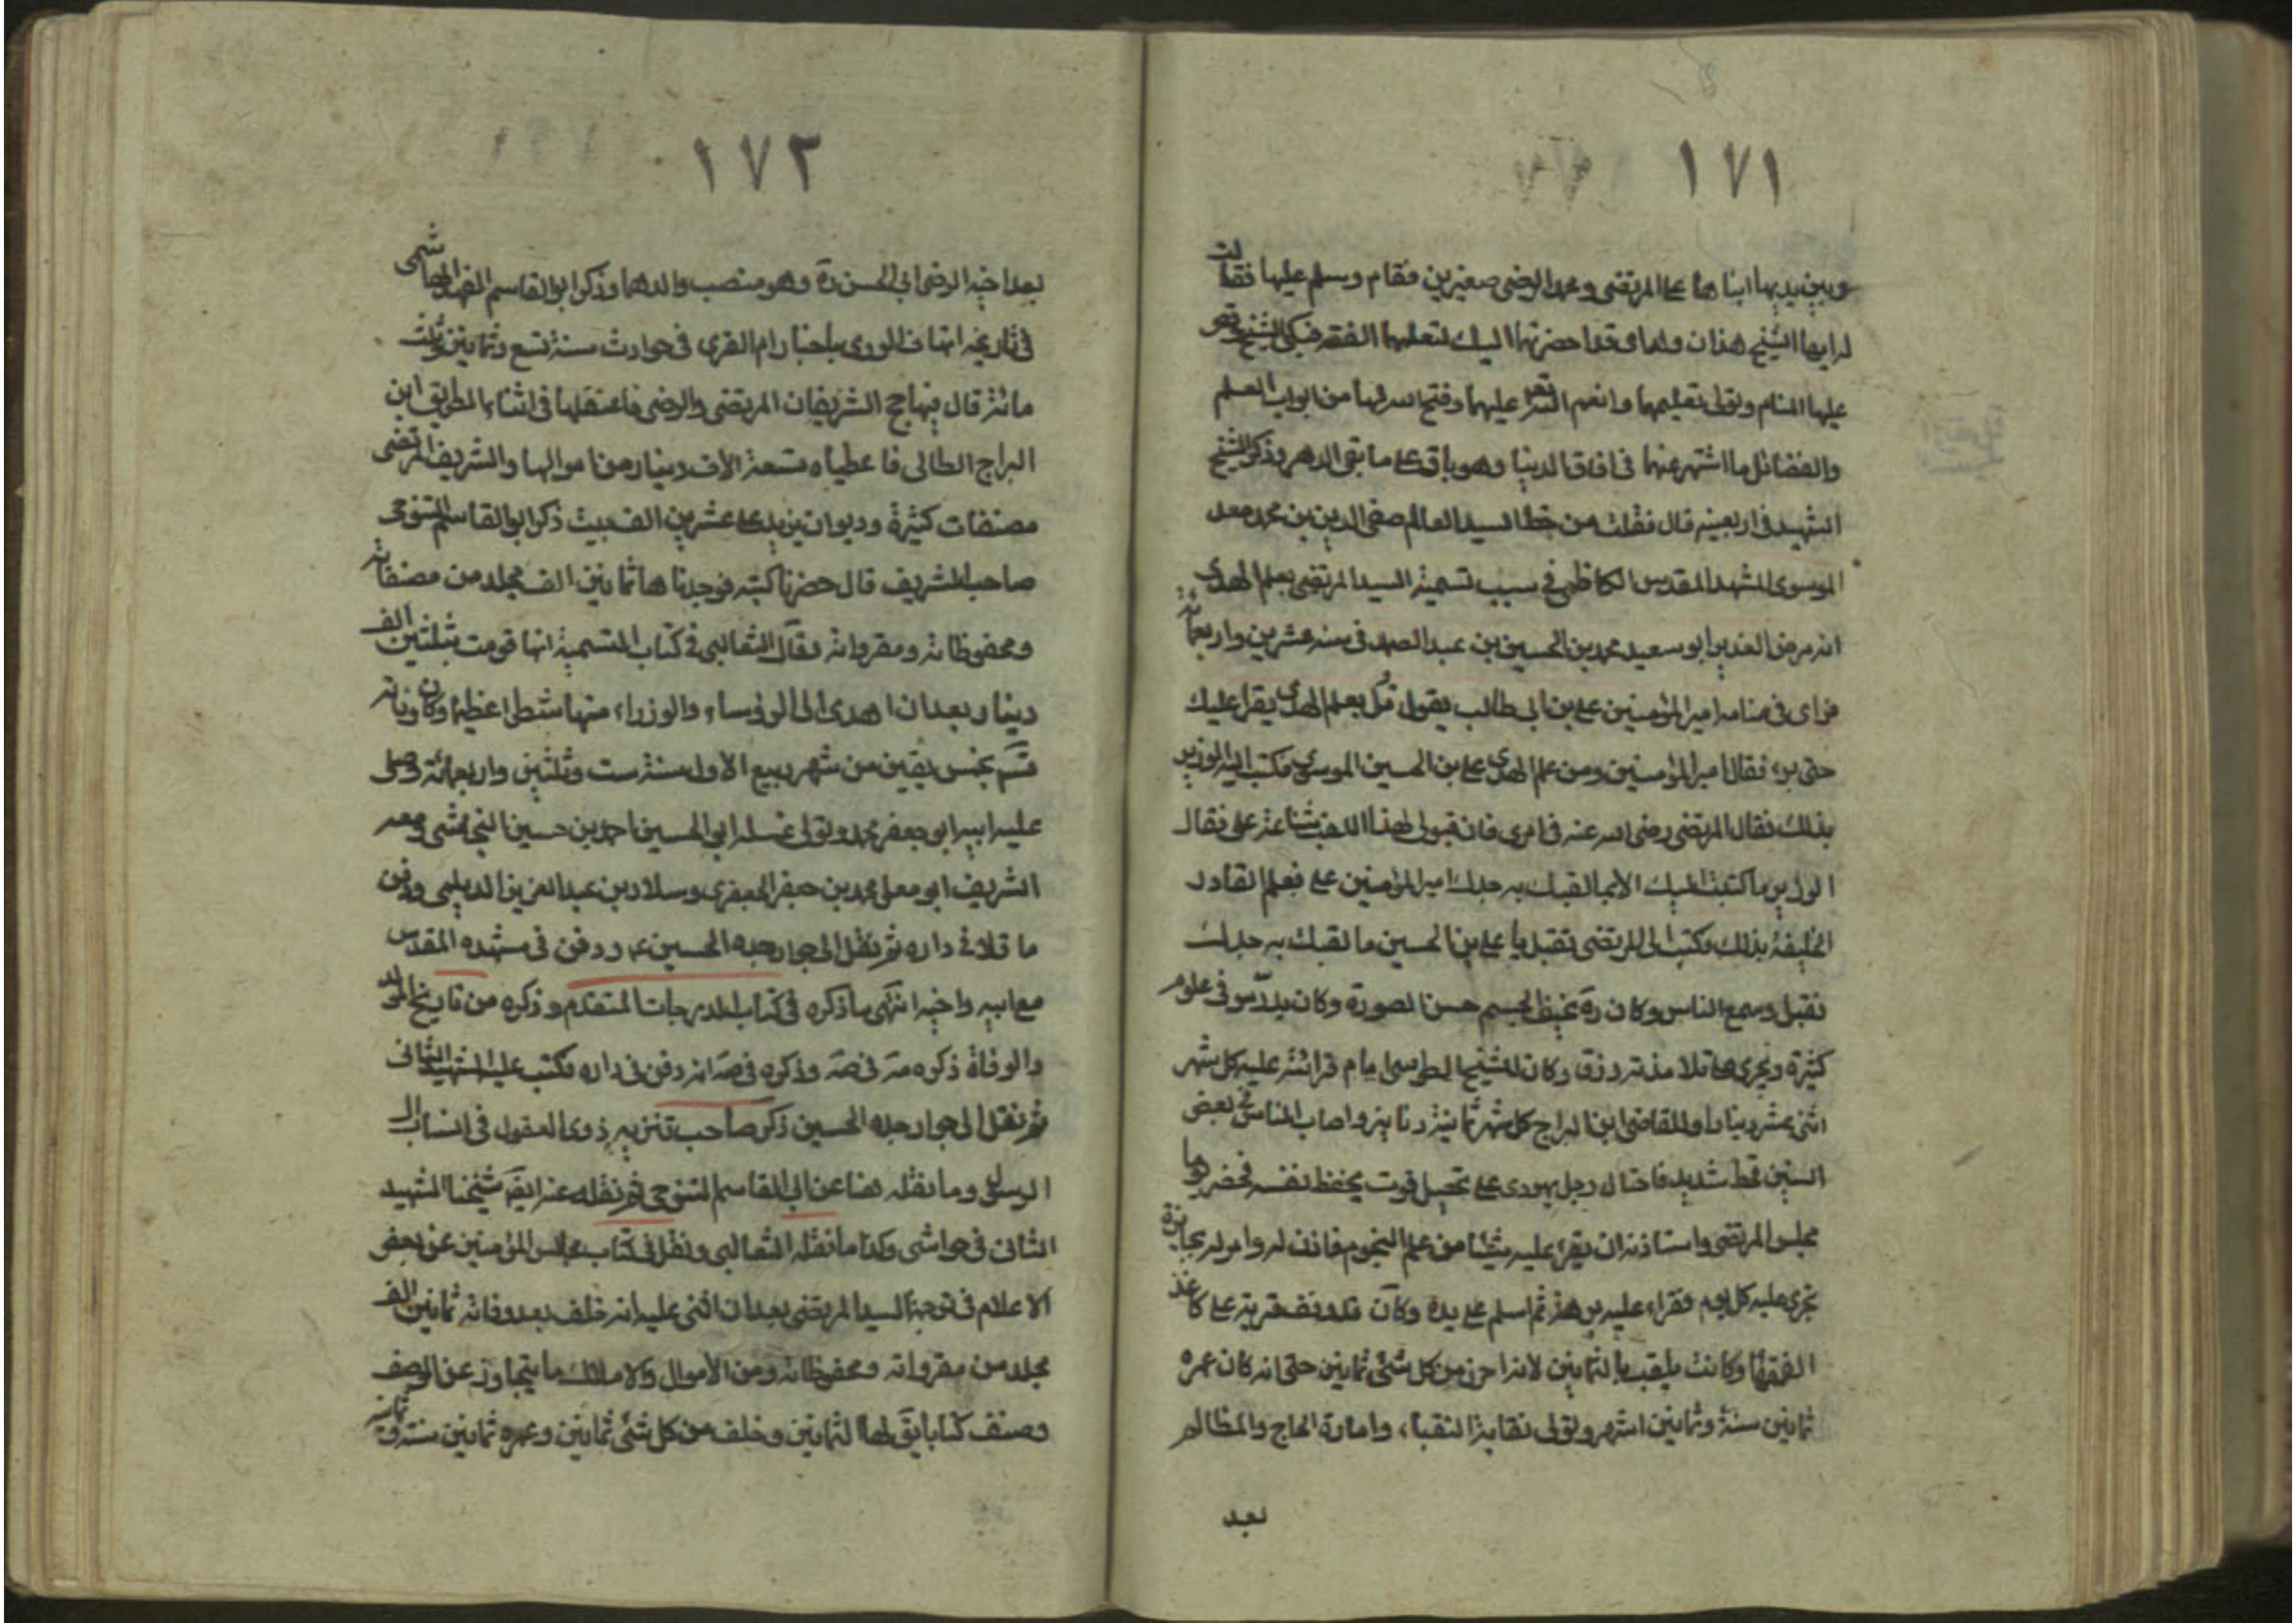 ١٧١
وبين يديها ابناها على المرتضى ومحمد الرضى صغيرين فقام وسلم عليها فقالت
له ايها الشيخ هذان ولداى قد احضرتهما اليك لتعلمهما الفقه فبكى الشيخ وقص
عليها المنام وتولى تعليمهما وانعم الله تعم عليهما وفتح الله لهما من ابواب العلم
والفضائل ما اشتهر عنهما فى افاق الدنيا وهو باق على ما بقى الدهر وذكر الشيخ
الشهيد فى اربعينه قال نقلت من خط السيد العالم صفى الدين بن محمد معد
الموسوى المشهد المقدس الكاظمى فى سبب تسمية السيد المرتضى بعلم الهدى
انه مرض الوزير ابو سعيد محمد بن الحسين بن عبد الصمد فى سنه عشرين واربعمائة
فراى فى منامه امير المؤمنين على بن ابى طالب يقول قل بعلم الهدى يقرا عليك
حتى برء فقال امير المؤمنين ومن علم الهدى على بن الحسين الموسوى فكتب اليه الوزير
بذلك فقال المرتضى رضى الله عنه فى امرى فان قبولى لهذا اللقب شناعة على فقال
الوزير ما كتبت اليك الا بما لقبك به جدك امير المؤمنين على فعلم القادر
الخليفة بذلك فكتب الى المرتضى تقبل يا على بن الحسين ما لقبك به جدك
فقبل وسمع الناس وكان ره نحيف الجسم حسن الصورة وكان يدرس فى علوم
كثيرة ويجرى على تلامذته رزق وكان للشيخ الطوسى ايام قرائته عليه كل شهر
اثنى عشر دينارا وللقاضى ابن البراج كل شهر ثمانية دنانير واصاب الناس فى بعض
السنين قحط شديد فاحتال رجل يهودى على تحصيل قوت يحفظ نفسه فحضر يوما
مجلس المرتضى واستاذنه ان يقرء عليه شيئا من علم النجوم فاذن له وامر له بجائزة
تجرى عليه كل يوم فقراء عليه برهة ثم اسلم على يده وكان قد وقف قرية على كاغذ
الفقهاء وكانت يلقب بالثمانين لانه احرز من كل شئ ثمانين حتى انه كان عمره
ثمانين سنة وثمانين اشهر وتولى نقابة النقباء وامارة الحاج والمظالم
بعد
١٧٢
بعد اخيه الرضى ابى الحسن ره وهو منصب والدهما وذكر ابو القاسم الفهد الهاشمى
فى تاريخه اتحاف الورى باخبار ام القرى فى حوادث سنة تسع وثمانين وثلث
مائة قال فيها حج الشريفان المرتضى والرضى فاعتقلهما فى اثناء الطريق ابن
البراج الطائى فاعطياه تسعة الاف دينار من اموالها والشريف المرتضى
مصنفات كثيرة وديوان يزيد على عشرين الف بيت ذكر ابو القاسم التنوخى
صاحب الشريف قال حضرنا كتبه فوجدناها ثمانين الف مجلد من مصنفاته
ومحفوظاته ومقرواته وقال الثعالبى فى كتاب التسمية انها قومت بثلثين الف
دينار بعد ان اهدى الى الرؤساء والوزراء منها شطرا عظيما وكان وفاته
قسم بخمس بقين من شهر ربيع الاول سنة ست وثلثين واربعمائة وصلى
عليه ابيه ابو جعفر محمد وتولى غسله ابو الحسين احمد بن حسين النجاشى ومعه
الشريف ابو معلى محمد بن جعفر الجعفرى وسلار بن عبد العزيز الديلمى ودفن
ما قلا فى داره ثم نقل الى جوار جده الحسين ع ودفن فى مشهده المقدس
مع ابيه واخيه انتهى ما ذكره فى كتاب الدرجات المتقدم وذكره من تاريخ المولد
والوفاة ذكره مة فى صة وذكره فى صة انه دفن فى داره وكتب عليه الشهيد الثانى
ثم نقل الى جوار جده الحسين ذكر صاحب تنزيه ذوى العقول فى انساب ال
الرسول وما نقله هنا عن ابى القاسم التنوخى ثم نقله عنه ايضا شيخنا الشهيد
الثانى فى حواشى وكذا ما نقله الثعالبى ونقل فى كتاب مجالس المؤمنين عن بعض
الاعلام فى ترجمة السيد المرتضى بعد ان اثنى عليه انه خلف بعد وفاته ثمانين الف
مجلد من مقرواته ومحفوظاته ومن الاموال والاملاك ما يتجاوز عن الوصف
وصنف كتابا يق لها الثمانين وخلف من كل شئ ثمانين وعمره ثمانين سنة وثمانية